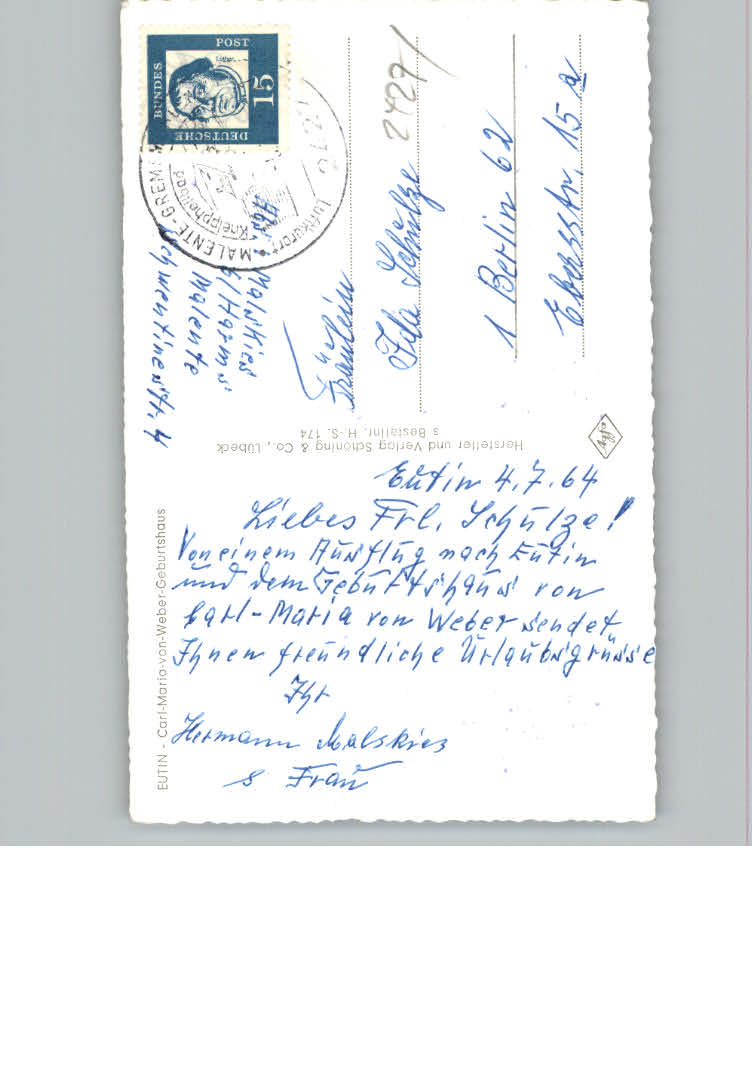 Eutin 4.7.64
Liebes Frl. Schulze!
Von einem Ausflug nach Eutin
und dem Geburtshaus von
Carl-Maria von Weber sendet
Ihnen freundliche Urlaubsgrüsse
Ihr
Hermann Malskies
& Frau
EUTIN - Carl-Maria-von-Weber-Geburtshaus
Hersteller und Verlag Schöning & Co., Lübeck
s Bestellnr. H.-S. 174
Agfa
DEUTSCHE
BUNDES
POST
15
Luftkurort · MALENTE-GREM
Kneippheilbad
Abs.
Malskies
b/Harms
Malente
Schwentinestr. 4
2427/
Fräulein
Ida Schulze
1 Berlin 62
Ebersstr. 15 a